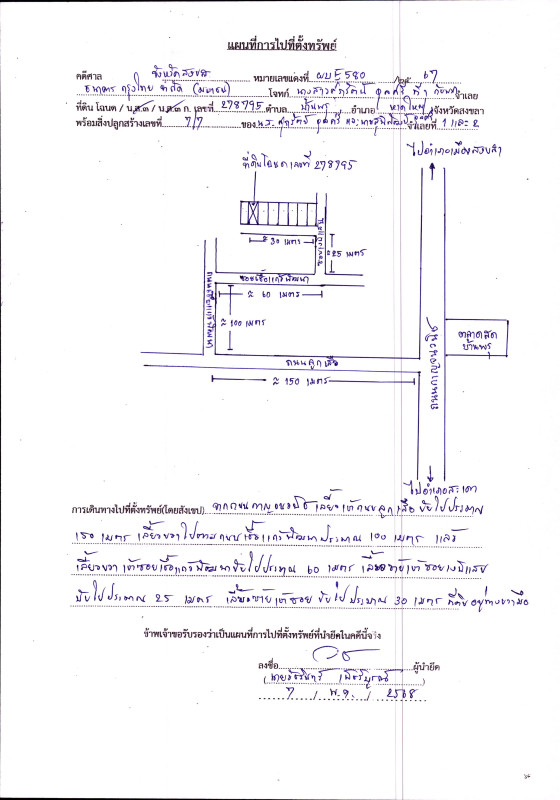 แผนที่การไปที่ตั้งทรัพย์
คดีศาล จังหวัดสงขลา หมายเลขแดงที่ ผบE580 / 67
ธนาคาร กรุงไทย จำกัด (มหาชน) โจทก์ จำเลย
ที่ดิน โฉนด / น.ส.๓ / น.ส.๓ ก. เลขที่ 278795 ตำบล บ้านพรุ อำเภอ หาดใหญ่ จังหวัดสงขลา
พร้อมสิ่งปลูกสร้างเลขที่ 7/7 ของ จำเลยที่ 1 และ 2
ไปอำเภอเมืองสงขลา
ที่ดินโฉนดเลขที่ 278795
≈ 30 เมตร
≈25 เมตร
ซอยเชื้อแก้วพัฒนา
≈ 60 เมตร
≈ 100 เมตร
ถนนกาญจนวนิช
ตลาดสด
บ้านพรุ
ถนนลูกเสือ
≈ 150 เมตร
ไปอำเภอสะเดา
การเดินทางไปที่ตั้งทรัพย์(โดยสังเขป) จากถนนกาญจนวนิช เลี้ยวเข้าถนนลูกเสือ ขับไปประมาณ
150 เมตร เลี้ยวขวาไปตามถนนเชื้อแก้วพัฒนาประมาณ 100 เมตร แล้ว
เลี้ยวขวาเข้าซอยเชื้อแก้วพัฒนาขับไปประมาณ 60 เมตร เลี้ยวซ้ายเข้าซอย
ขับไปประมาณ 25 เมตร เลี้ยวซ้ายเข้าซอย ขับไปประมาณ 30 เมตร ที่ดินอยู่ทางขวามือ
ข้าพเจ้าขอรับรองว่าเป็นแผนที่การไปที่ตั้งทรัพย์ที่นำยึดในคดีนี้จริง
ลงชื่อ ผู้นำยึด
7 / พ.ย. / 2568